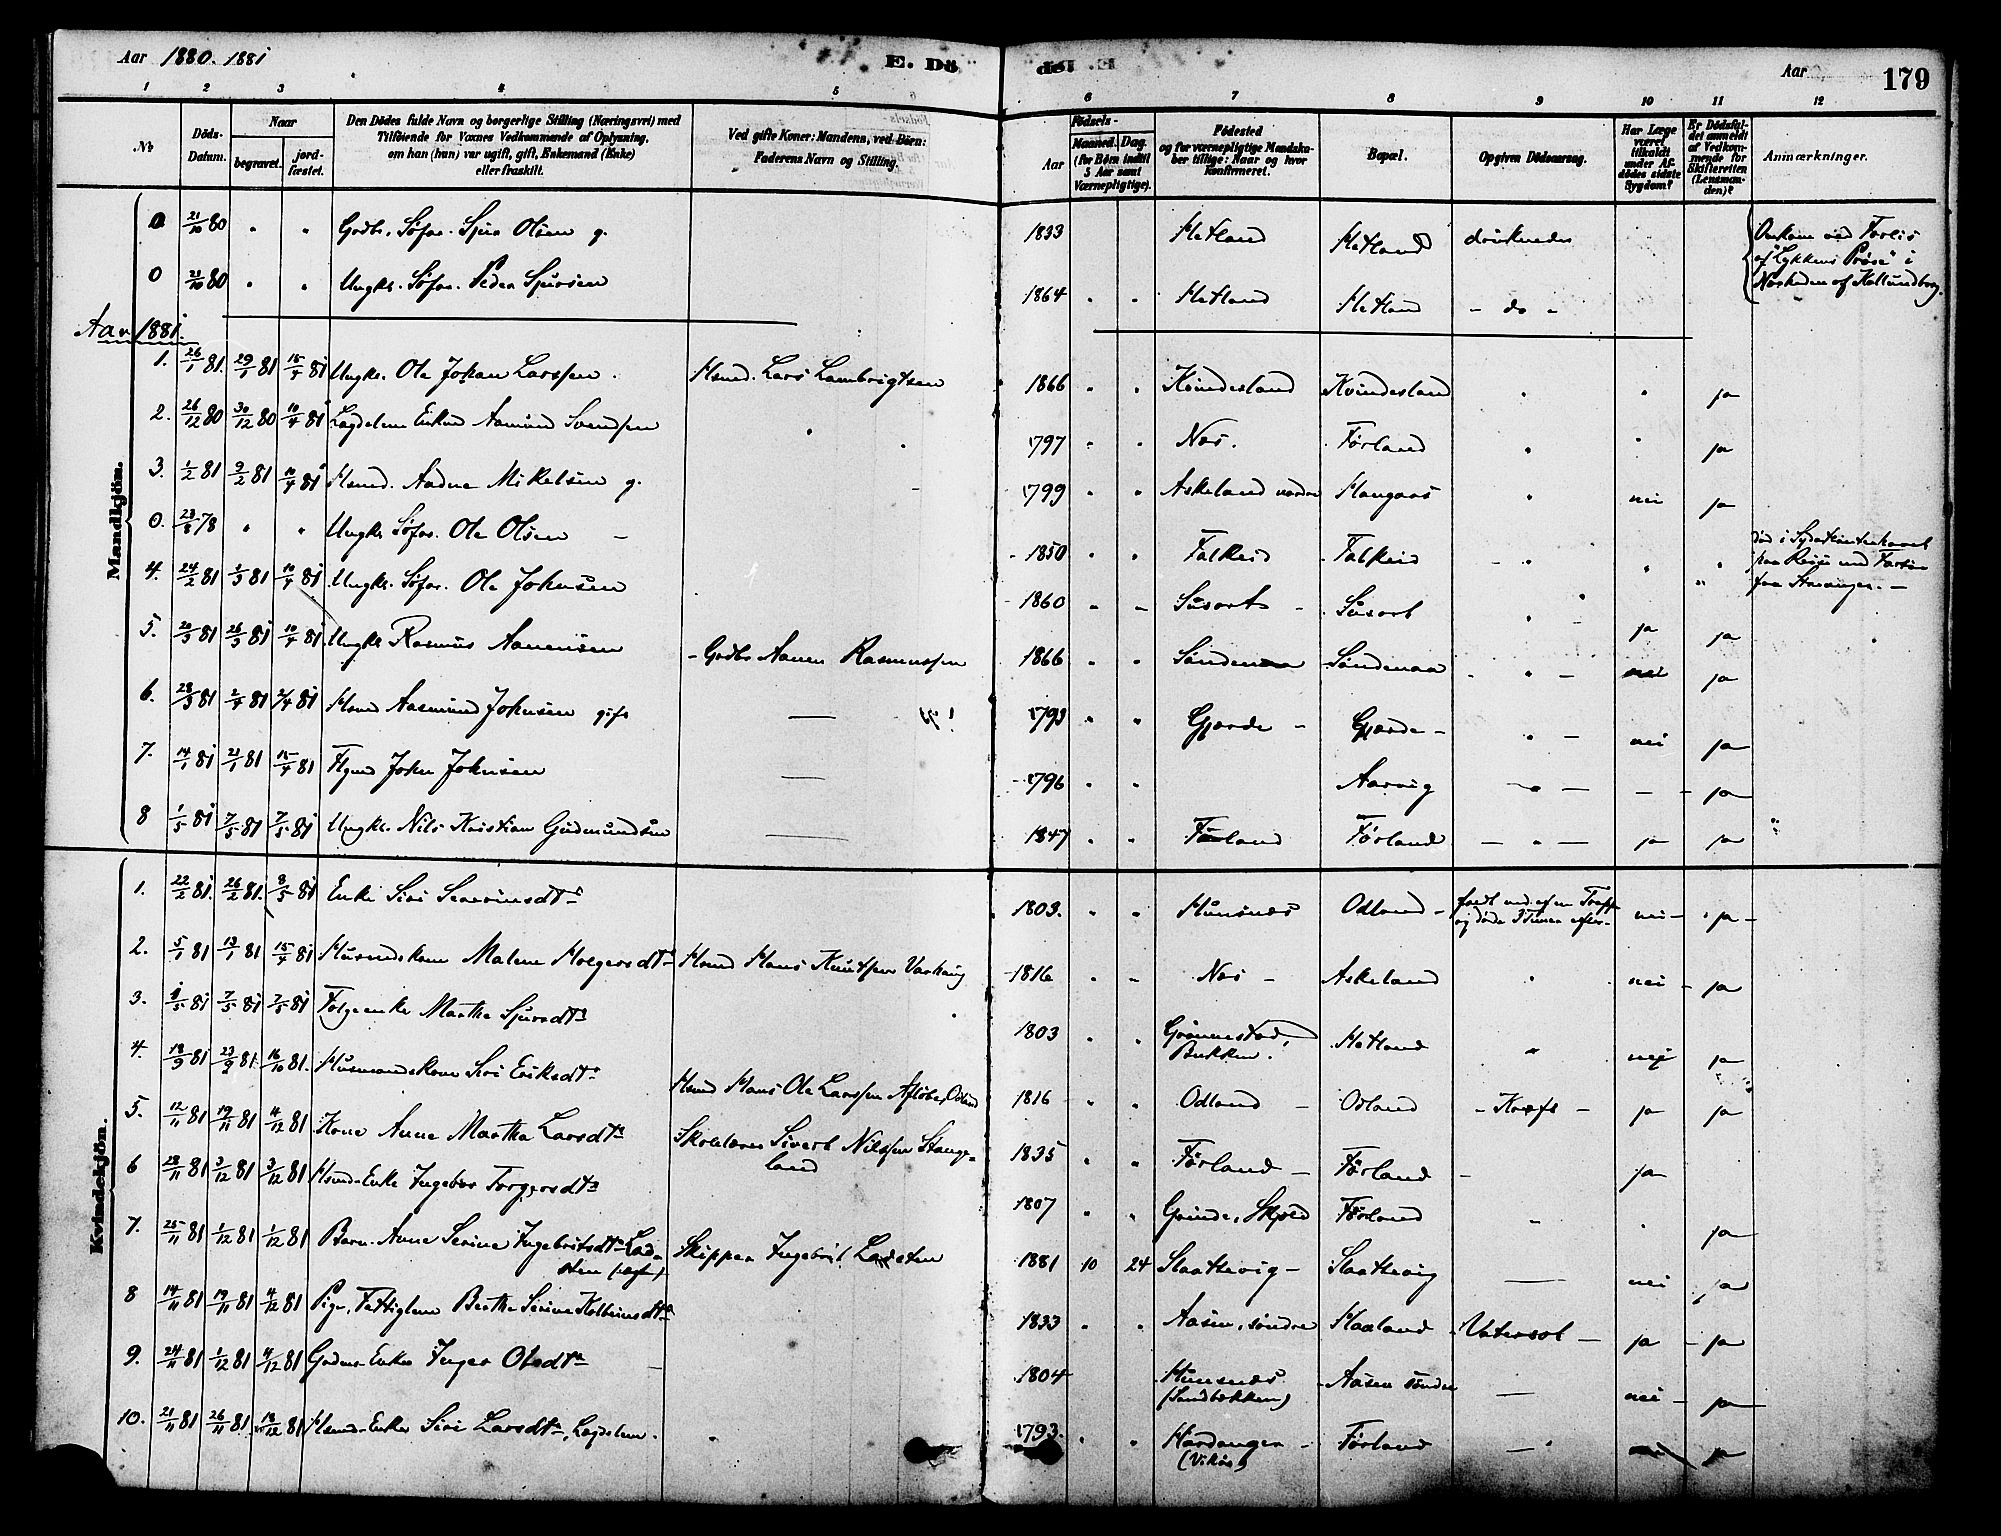 Aar 1880. 1881
E. Dö
de.
Aar
179
1 2 3 4 5 6 7 8 9 10 11 12
No
Döds-Datum.
Naar
begravet.
jord-fæstet.
Den Dödes fulde Navn og borgerlige Stilling (Næringsvei) med
Tilföiende for Voxnes Vedkommende af Oplysning,
om han (hun) var ugift, gift, Enkemand (Enke)
eller fraskilt.
Ved gifte Koner: Mandens, ved Börn:
Faderens Navn og Stilling.
Födsels-
Aar
Maaned. Dag.
(for Börn indtil
5 Aar samt
Værnepligtige).
Födested
og for værnepligtige Mandska-
ber tillige: Naar og hvor
Konfirmeret.
Bopæl.
Opgiven Dödsaarsag.
Har Læge
været
tilkaldt
under Af-
dödes sidste
Sygdom?
Er Dödsfal-
det anmeldt
af Vedkom-
mende for
Skifteretten
(Lensman-
den)?
Anmærkninger.
Mandkjön.
0 21/10 80 " " Gdbr. Søfar. Sjur Olsen g. 1833 Hetland Hetland druknede
Omkom ved Forlis
af "Lykkens Prøve" i
Nærheden af Kallundborg.
0 21/10 80 " " Ungkr. Søfar. Peder Sjursen 1864 " " Hetland Hetland - do -
Aar 1881.
1. 26/1 81. 29/1 81 15/4 81 Ungkr. Ole Johan Larssen. Hsmd. Lars Lambrigtsen 1866 " " Kvindesland Kvindesland " " ja
2. 26/12 80 30/12 80 10/4 81 Lægdslem Enkmd Aamund Svendsen 1797 " " Nes. Førland " " ja
3. 1/2 81 9/2 81 10/4 81 Hsmd. Aadne Mikelsen g. 1799 " " Askeland nordre Haugaas " nei ja
0. 23/8 78 " " Ungkr. Søfar. Ole Olsen - 1850 " " Falkeid Falkeid
paa Reise med
fra Stavanger. -
4. 24/2 81 1/3 81 10/4 81 Ungkr. Søfar. Ole Johnsen 1860 Susort - Susort ja ja
5. 20/3 81 26/3 81 10/4 81 Ungkr Rasmus Aanensen - Gdbr Aanen Rasmussen 1866 " " Søndenaa Søndenaa nei ja
6. 28/3 81 2/4 81 2/4 81 Hsmd Aasmund Johnsen gift 1793 " " Gjerde - Gjerde - " - nei ja
7. 14/1 81 21/1 81 15/4 81 John Johnsen 1796 " " Aarvig - ja
8 1/5 81 7/5 81 7/5 81 Ungkr. Nils Kristian Gudmundsen 1847 " " Førland Førland - " - ja ja
Kvindekjön.
1. 22/2 81. 26/2 81. 8/5 81 Enke Siri Severinsdtr 1803. " " Hunsnes Odland - faldt ned af en Trappe
og døde 3 Timer efter. nei - ja -
2. 5/1 81 13/1 81 15/4 81 Husmandskone Malene Holgersdtr Hsmd Hans Knutsen Varhaug 1816 " - Nes - Askeland " nei - ja
3. 1/5 81 7/5 81 7/5 81 Følgeenke Martha Sjursdtr 1803 Grønnestad,
Bukken. Hetland " nei ja
4. 18/9 81 23/9 81. 16/10 81. Husmandskone Siri Eriksdtr Hsmd Hans Ole Larssen Odland 1816 " " Odland - Odland - Kræft - ja ja
5. 12/11 81 19/11 81 4/12 81 Kone Anne Martha Larsdtr Skolelærer Sivert Nilssen Stange-
land 1835 " " Førland - Førland - ja
6 28/11 81 3/12 81 3/12 81 Hsmd-Enke Ingebor Torgersdtr 1807 " " Grinde, Skjold Førland ja
7. 25/11 81 1/12 81 1/12 81 Barn. Anne Serine Ingebritsdtr Lad-
sten (ægte) Skipper Ingebrit Ladsten 1881 10 24 Slaattevig - Slaattevig nei ja
8 14/11 81 19/11 81 4/12 81 Pige, Fattiglem Berthe Serine Kolbeinsdtr 1833 " " Aasen, søndre Haaland Vatersot - ja - ja
9. 24/11 81 1/12 81 4/12 81 Gdmds Enke Inger Olsdtr 1804 Hunsnes
(Sandbekken) Aasen søndre nei - ja
10. 21/11 81 26/11 81. 18/12 81 Hsmds-Enke Siri Larsdtr, Lægdslem. 1793. " " Hardanger -
(Vikør) Førland ja